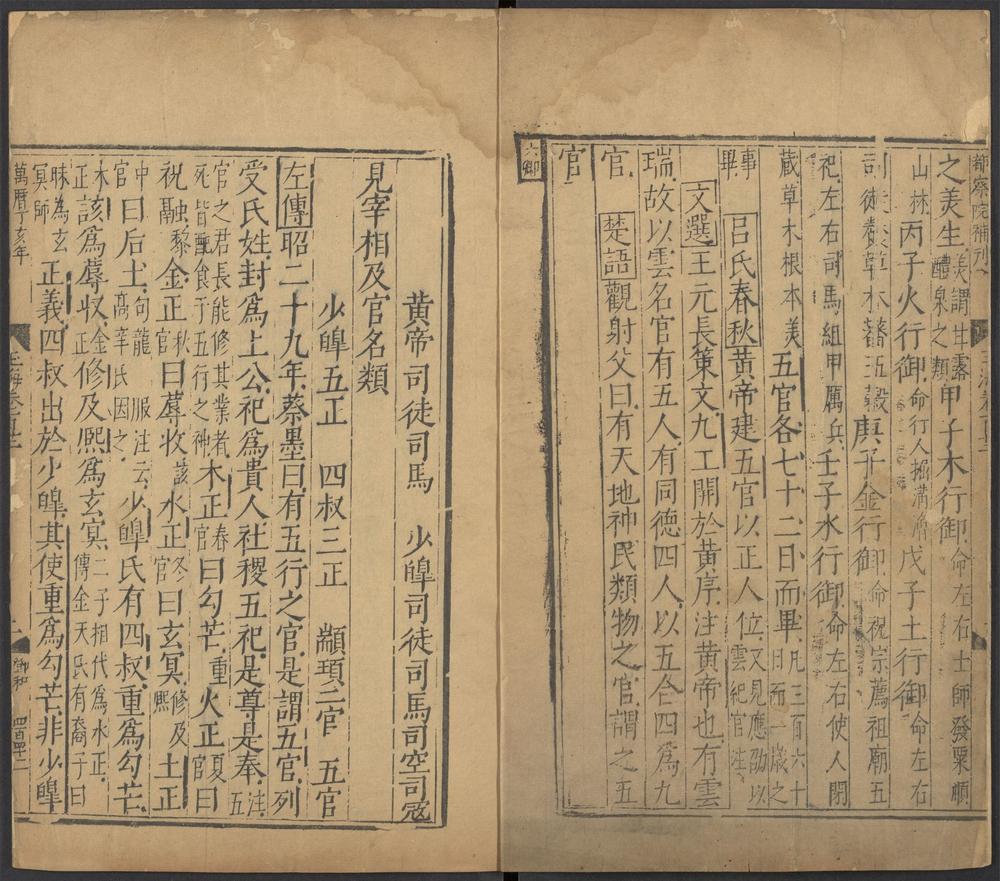 都察院補刊
之美生美謂甘露醴泉之類甲子木行御命左右士師發粟順
山林丙子火行御命行人掘溝澮戊子土行御命左右
司徒養草木蕃五穀庚子金行御命祝宗薦祖廟五
祀左右司馬組甲厲兵壬子水行御命左右使人閉
藏草木根本美五官各七十二日而畢凡三百六十日而一歲之
事畢呂氏春秋黃帝建五官以正人位又見應劭以雲紀官注
文選王元長策文九工開於黃序注黃帝也有雲
瑞故以雲名官有五人有同德四人以五合四為九
官楚語觀射父曰有天地神民類物之官謂之五
官
六卿
黃帝司徒司馬 少皥司徒司馬司空司寇
見宰相及官名類
少皥五正 四叔三正 顓頊二官 五官
左傳昭二十九年蔡墨曰有五行之官是謂五官列
受氏姓封為上公祀為貴人社稷五祀是尊是奉注五
官之君長能修其業者死皆配食于五行之神木正春官曰勾芒重火正夏官曰
祝融黎金正秋官曰蓐收該水正冬官曰玄冥修及熙土正
中官曰后土句龍服注云高辛氏因之少皥氏有四叔重為勾芒
木正該為蓐收金正修及熙為玄冥二子相代為水正傳金天氏有裔子曰
昧為玄冥師正義四叔出於少皥其使重為勾芒非少皥
萬曆丁亥年
四百四十二